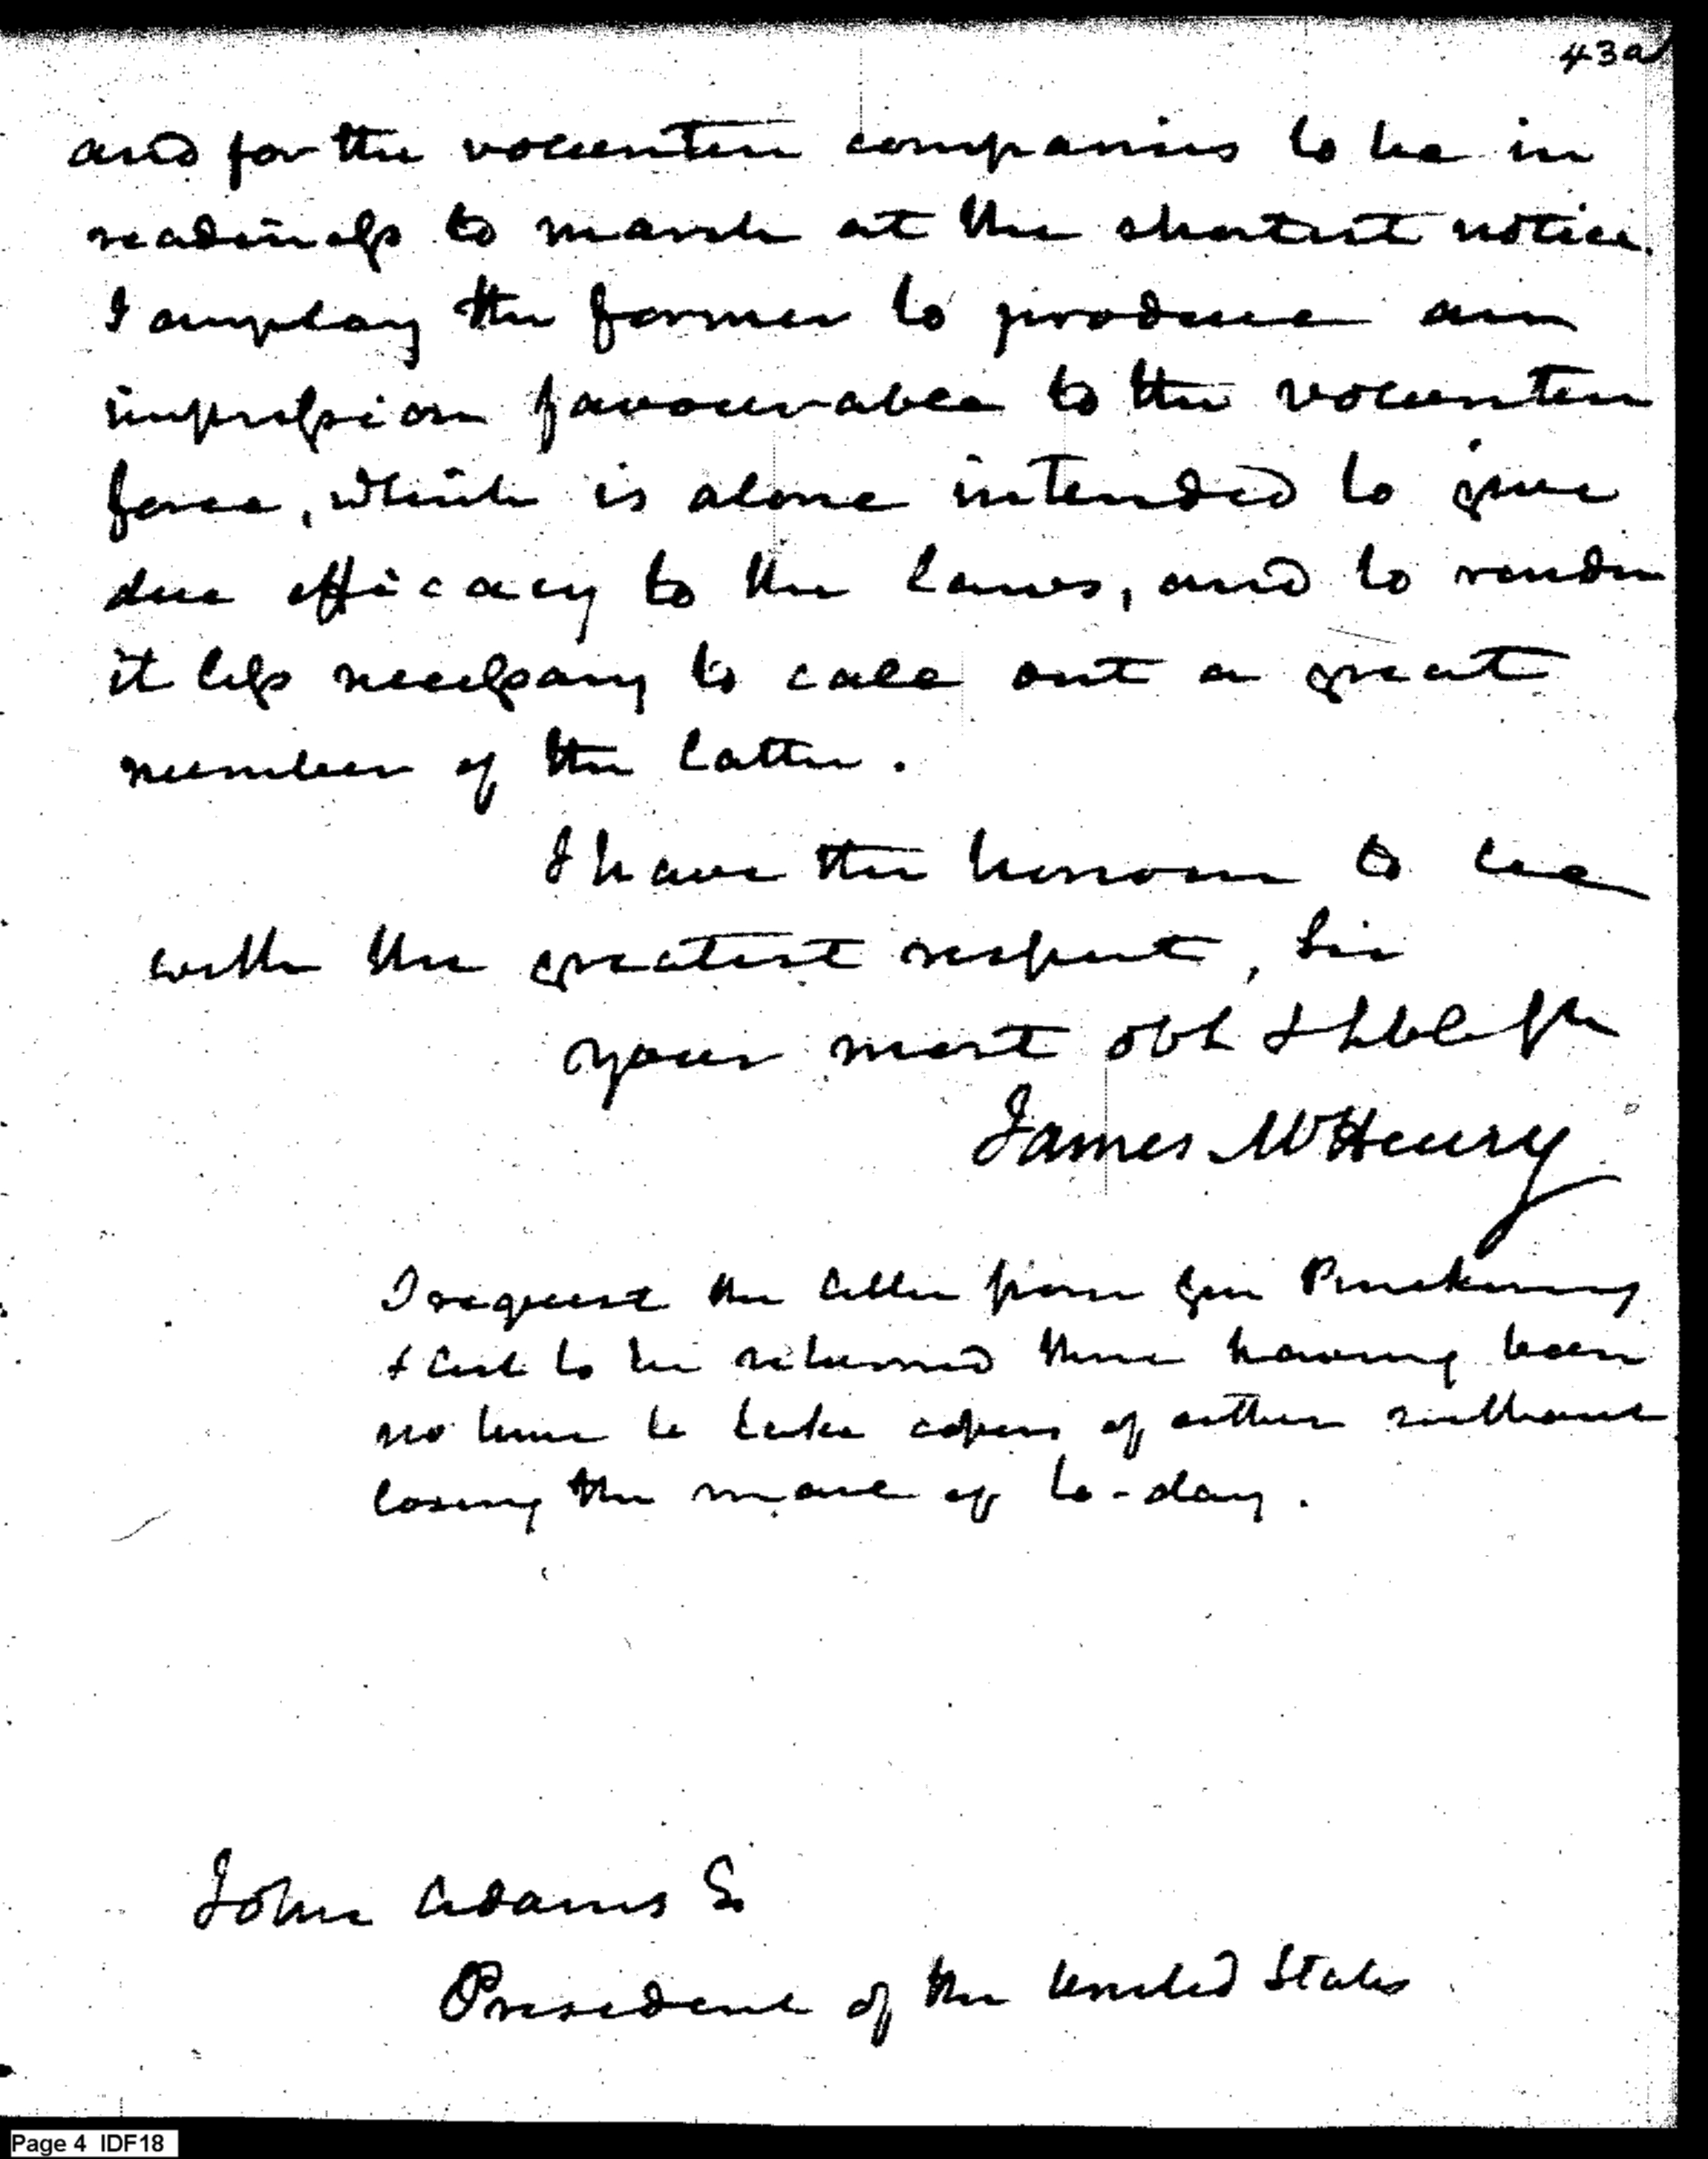 43a
and for the volunteer companies to be in
readiness to march at the shortest notice.
I employ the former to produce an
impression favourable to the volunteer
force, which is alone intended to give
due efficacy to the laws, and to render
it less necessary to call out a great
number of the latter.
I have the honour to be
with the greatest respect, Sir
your most obt & hble st
James McHenry
I request the letter from Gen Pinckney
& to be returned there having been
no time to take copies of either without
losing the mail of to-day.
John Adams
President of the United States
Page 4 IDF18